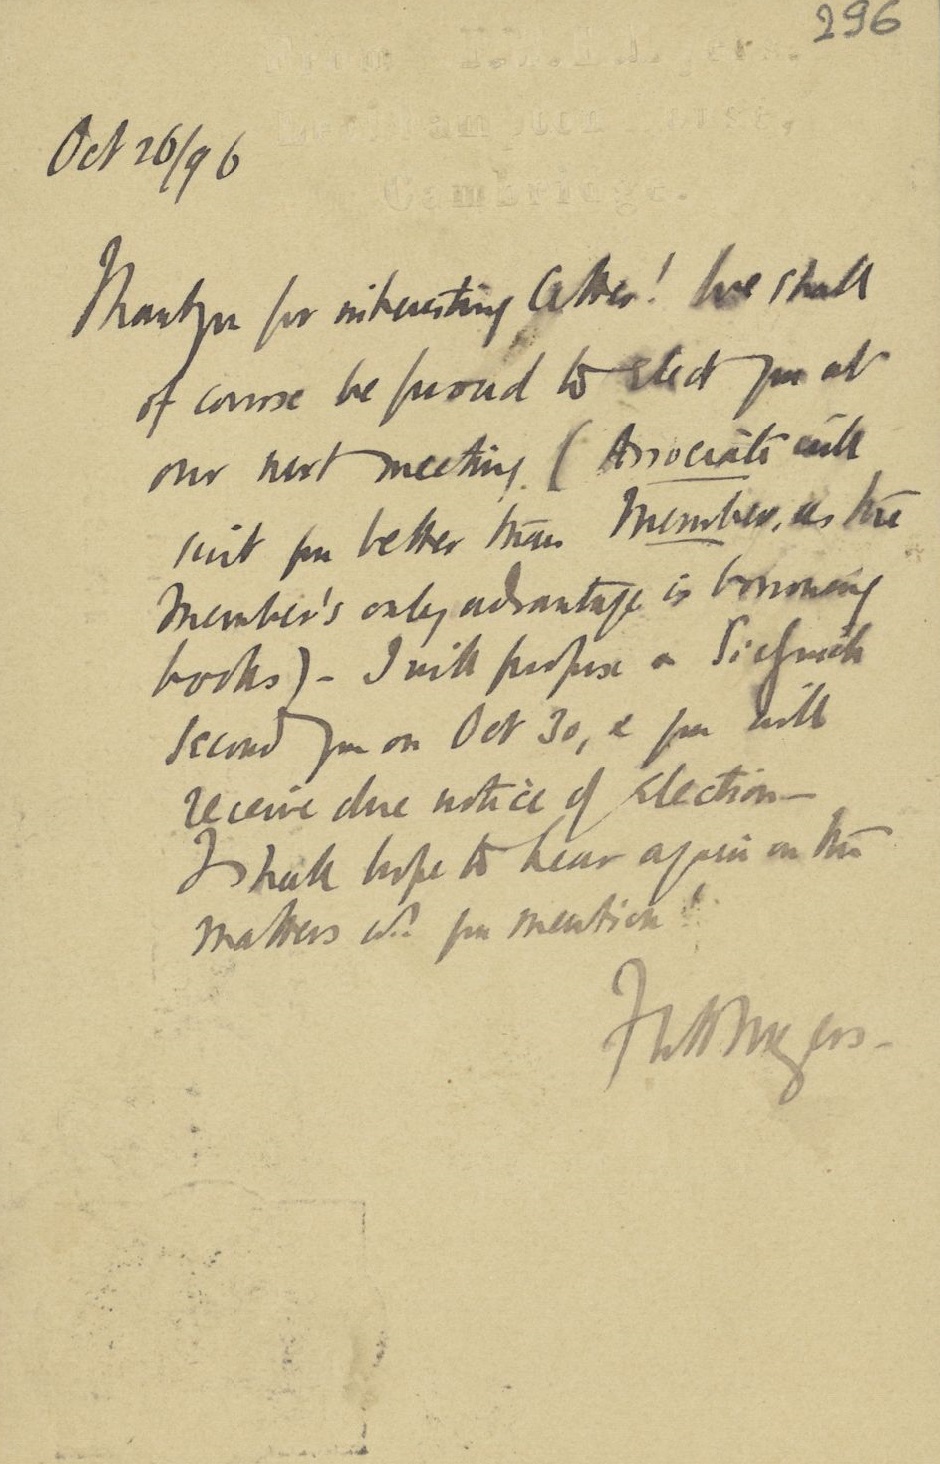 296
From F.W.H. Myers.
Leckhampton House,
Cambridge.
Oct 26/96
Thank you for interesting letter! We shall
of course be proud to elect you at
our next meeting. (Associate will
suit you better than Member, as the
Member's only advantage is borrowing
books) - I will propose & Sidgwick
second you on Oct 30, & you will
receive due notice of election —
I shall hope to hear again on the
matters wh. you mention!
F W H Myers -